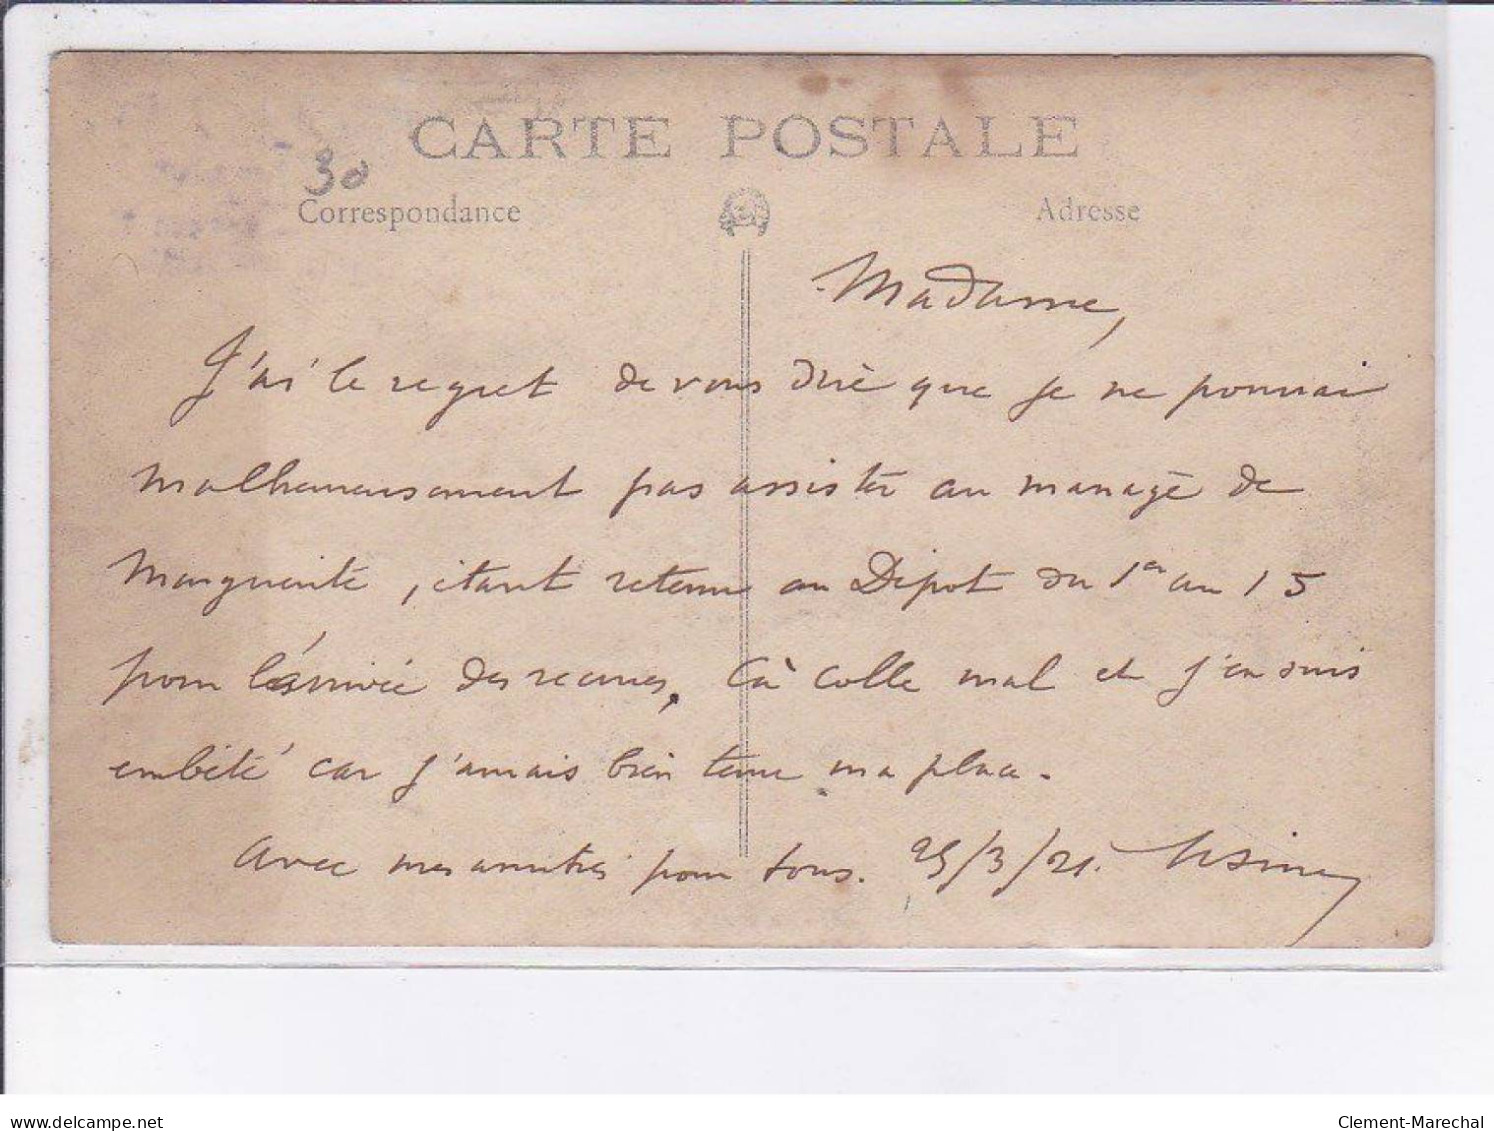 CARTE POSTALE
30
Correspondance
Adresse
Madame,
J'ai le regret de vous dire que je ne pourrai
malheureusement pas assister au mariage de
Marguerite, étant retenu au Dépôt du 1er au 15
pour l'arrivée des recrues, Cà colle mal et j'en suis
embêté car j'aimais bien tenir ma place.
Avec mes amitiés pour tous. 25/3/21.
delcampe.net
Clement-Marechal